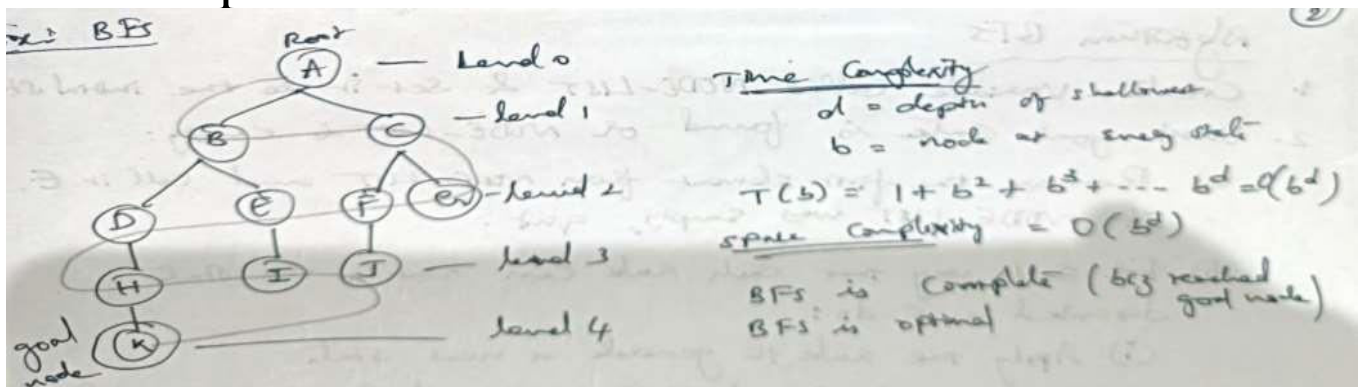 Ex: BFS
Root
A — Level 0
B C — level 1
D E F G — level 2
H I J — level 3
goal node K — level 4
2
Time Complexity
d = depth of shallowest
b = node at every state
T(b) = 1 + b² + b³ + --- b^d = O(b^d)
Space Complexity = O(b^d)
BFS is Complete (bcz reached goal node)
BFS is optimal